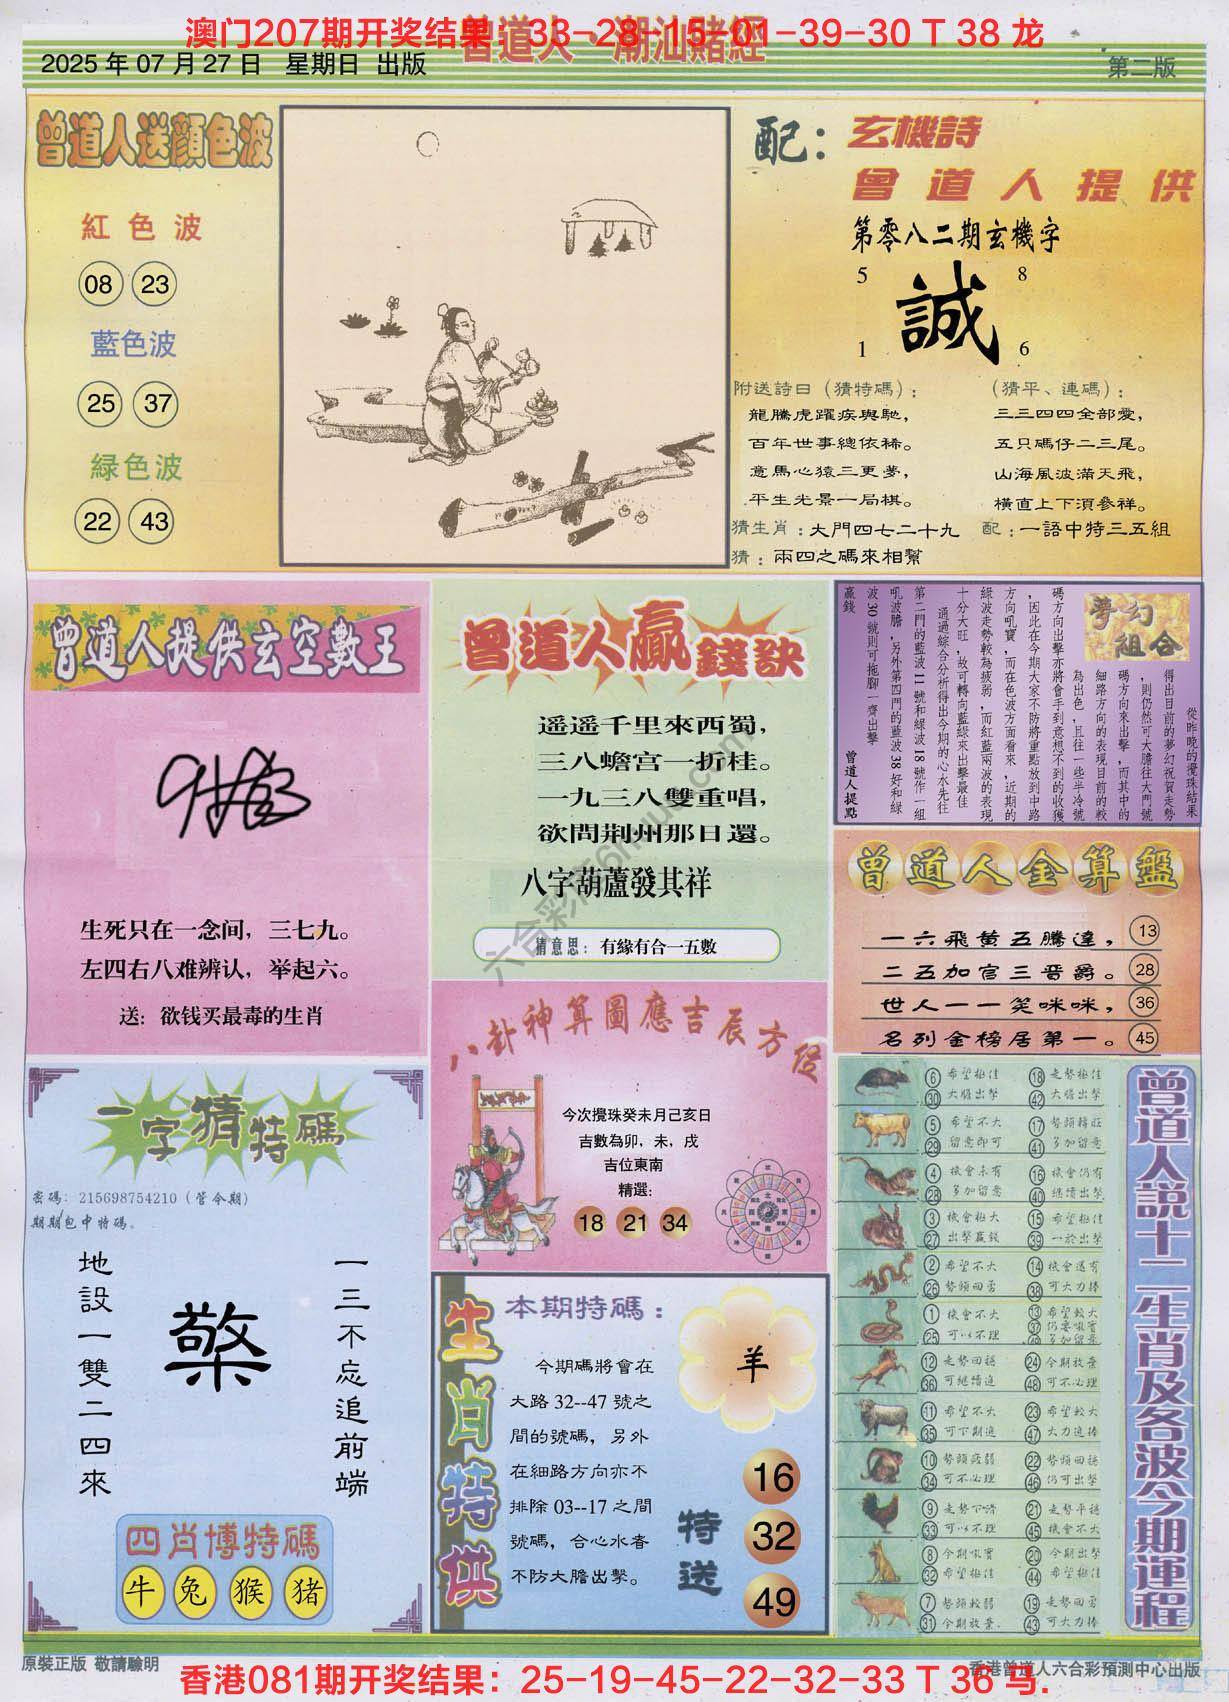 澳门207期开奖结果：33-28-15-01-39-30 T 38 龙
曾道人·潮汕賭經
2025 年 07 月 27 日 星期日 出版
第二版
曾道人送顏色波
紅色波
08 23
藍色波
25 37
緑色波
22 43
配：玄機詩
曾道人提供
第零八二期玄機字
5 8
誠
1 6
附送詩曰（猜特碼）：
龍騰虎躍疾與馳，
百年世事總依稀。
意馬心猿三更夢，
平生光景一局棋。
（猜平、連碼）：
三三四四全部愛，
五只碼仔二三尾。
山海風波滿天飛，
橫直上下須參祥。
猜生肖：大門四七二十九 配：一語中特三五組
猜：兩四之碼來相幫
曾道人提供玄空數王
生死只在一念间，三七九。
左四右八难辨认，举起六。
送：欲钱买最毒的生肖
曾道人贏錢訣
遥遥千里來西蜀，
三八蟾宫一折桂。
一九三八雙重唱，
欲問荆州那日還。
八字葫蘆發其祥
猜意思：有緣有合一五數
夢幻組合
從昨晚的攪珠結果
得出目前的夢幻祝賀走勢
，則仍然可大膽往大門號
碼方向來出擊，而其中的
細路方向的表現目前的較
為出色，且往一些半冷號
碼方向出擊亦將會手到意想不到的收獲
，因此在今期大家不防將重點放到中路
方向吼寶，而在色波方面看來，近期的
綠波走勢較為疲弱，而紅藍兩波的表現
十分大旺，故可轉向藍綠來出擊最佳
通過綜合分析得出今期的心水先往
第二門的藍波 11 號和綠波 18 號作一組
吼波膽，另外第四門的藍波 38 好和綠
波 30 號則可拖腳一齊出擊
贏錢
曾道人提點
曾道人金算盤
一六飛黄五騰達， 13
二五加官三晋爵。 28
世人一一笑咪咪， 36
名列金榜居第一。 45
八卦神算圖應吉辰方位
今次攪珠癸未月己亥日
吉數為卯，未，戌
吉位東南
精選:
18 21 34
一字猜特碼
密碼: 215698754210（管今期）
期期包中特碼。
一三不忘追前端
地設一雙二四來
四肖博特碼
牛 兔 猴 猪
生肖特供
本期特碼：
羊
今期碼將會在
大路 32--47 號之
間的號碼，另外
在細路方向亦不
排除 03--17 之間
號碼，合心水者
不防大膽出擊。
特送
16
32
49
曾道人説十二生肖及各波今期運程
6 希望極佳 18 走勢極佳
30 大膽出擊 42 大膽出擊
5 希望不大 17 勢頭轉旺
29 留意即可 41 多加留意
4 機會未有 16 機會仍有
28 多加留意 40 継續出擊
3 機會極大 15 希望極佳
27 出擊贏錢 39 一於出擊
2 希望不大 14 機會還有
26 勢頭回勇 38 可大力捧
1 機會不大 13 希望較大
25 可以不理 37 仍要吼實
49 多加留意
12 走勢回穩 24 今期放棄
36 可継續追 48 可不必理
11 希望不大 23 希望較大
35 可下期追 47 大力追捧
10 勢頭疲弱 22 勢頭回穩
34 可不必理 46 仍可出擊
9 走勢下滑 21 走勢平穩
33 可以不理 45 機會不大
8 今期吼實 20 今期出擊
32 希望極佳 44 希望極佳
7 勢頭較弱 19 走勢回勇
31 今期放棄 43 可大力捧
原裝正版 敬請驗明
香港曾道人六合彩預測中心出版
香港081期开奖结果：25-19-45-22-32-33 T 36 马.